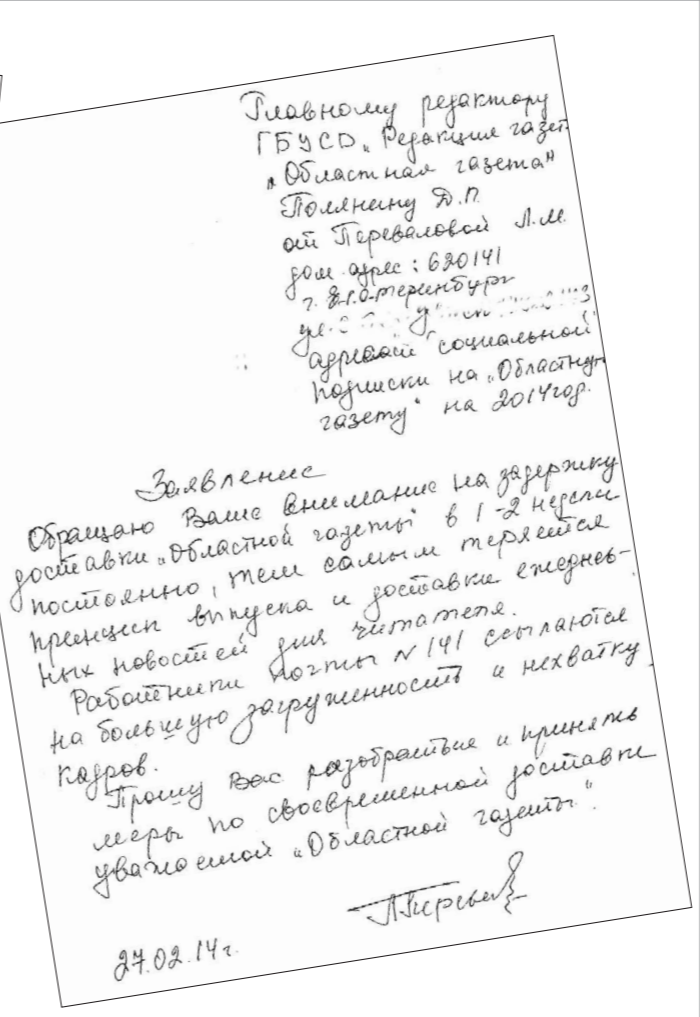 Главному редактору
ГБУСО „Редакция газет
„Областная газета"
Полянину Д.П.
от Переваловой Л.М.
дом. адрес: 620141
г. Екатеринбург
ул.
адресат социальной
подписки на „Областную
газету" на 2014 год.
Заявление
Обращаю Ваше внимание на задержку
доставки „Областной газеты" в 1-2 недели
постоянно, тем самым теряется
принцип выпуска и доставки ежеднев-
ных новостей для читателя.
Работники почты N 141 ссылаются
на большую загруженность и нехватку
кадров.
Прошу Вас разобраться и принять
меры по своевременной доставки
уважаемой „Областной газеты".
27.02.14 г.